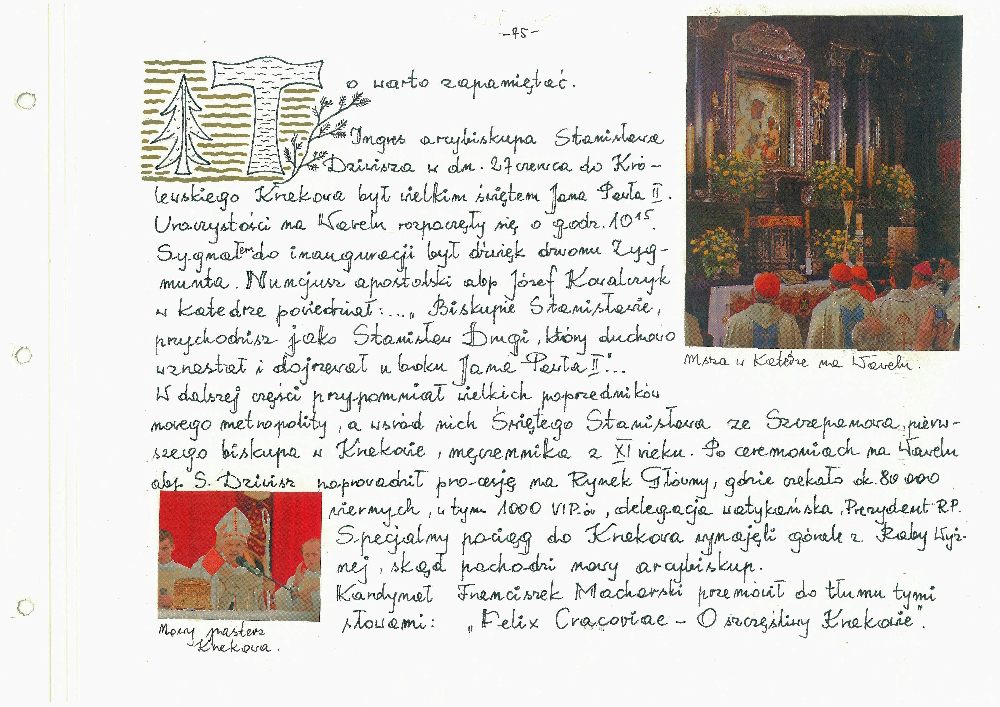 -45-
To warto zapamiętać.
Ingres arcybiskupa Stanisława
Dziwisza w dn. 27 czerwca do Kró-
lewskiego Krakowa był wielkim świętem Jana Pawła II.
Uroczystości na Wawelu rozpoczęły się o godz. 10¹⁵.
Sygnałem do inauguracji był dźwięk dzwonu Zyg-
munta. Nuncjusz apostolski abp Józef Kowalczyk
w katedrze powiedział:..." Biskupie Stanisławie,
przychodzisz jako Stanisław Drugi, który duchowo
wzrastał i dojrzewał u boku Jana Pawła II"...
W dalszej części przypomniał wielkich poprzedników
nowego metropolity, a wśród nich Świętego Stanisława ze Szczepanowa, pierw-
szego biskupa w Krakowie, męczennika z XI wieku. Po ceremoniach na Wawelu
abp S. Dziwisz poprowadził pro-cesję na Rynek Główny, gdzie czekało ok. 80 000
wiernych, w tym 1000 VIP.ów, delegacja watykańska, Prezydent R.P.
Specjalny pociąg do Krakowa wynajęli górale z Raby Wyż-
nej, skąd pochodzi nowy arcybiskup.
Kardynał Franciszek Macharski przemówił do tłumu tymi
słowami: "Felix Cracoviae - O szczęśliwy Krakowie".
Msza w Katedrze na Wawelu.
Nowy pasterz
Krakowa.